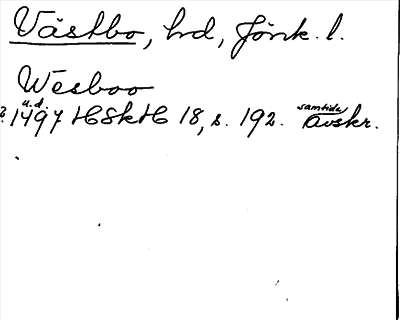 Västbo, hd, Jönk. l.
Wesboo
? u.d. 1497 HSkH 18, s. 192. samtida avskr.